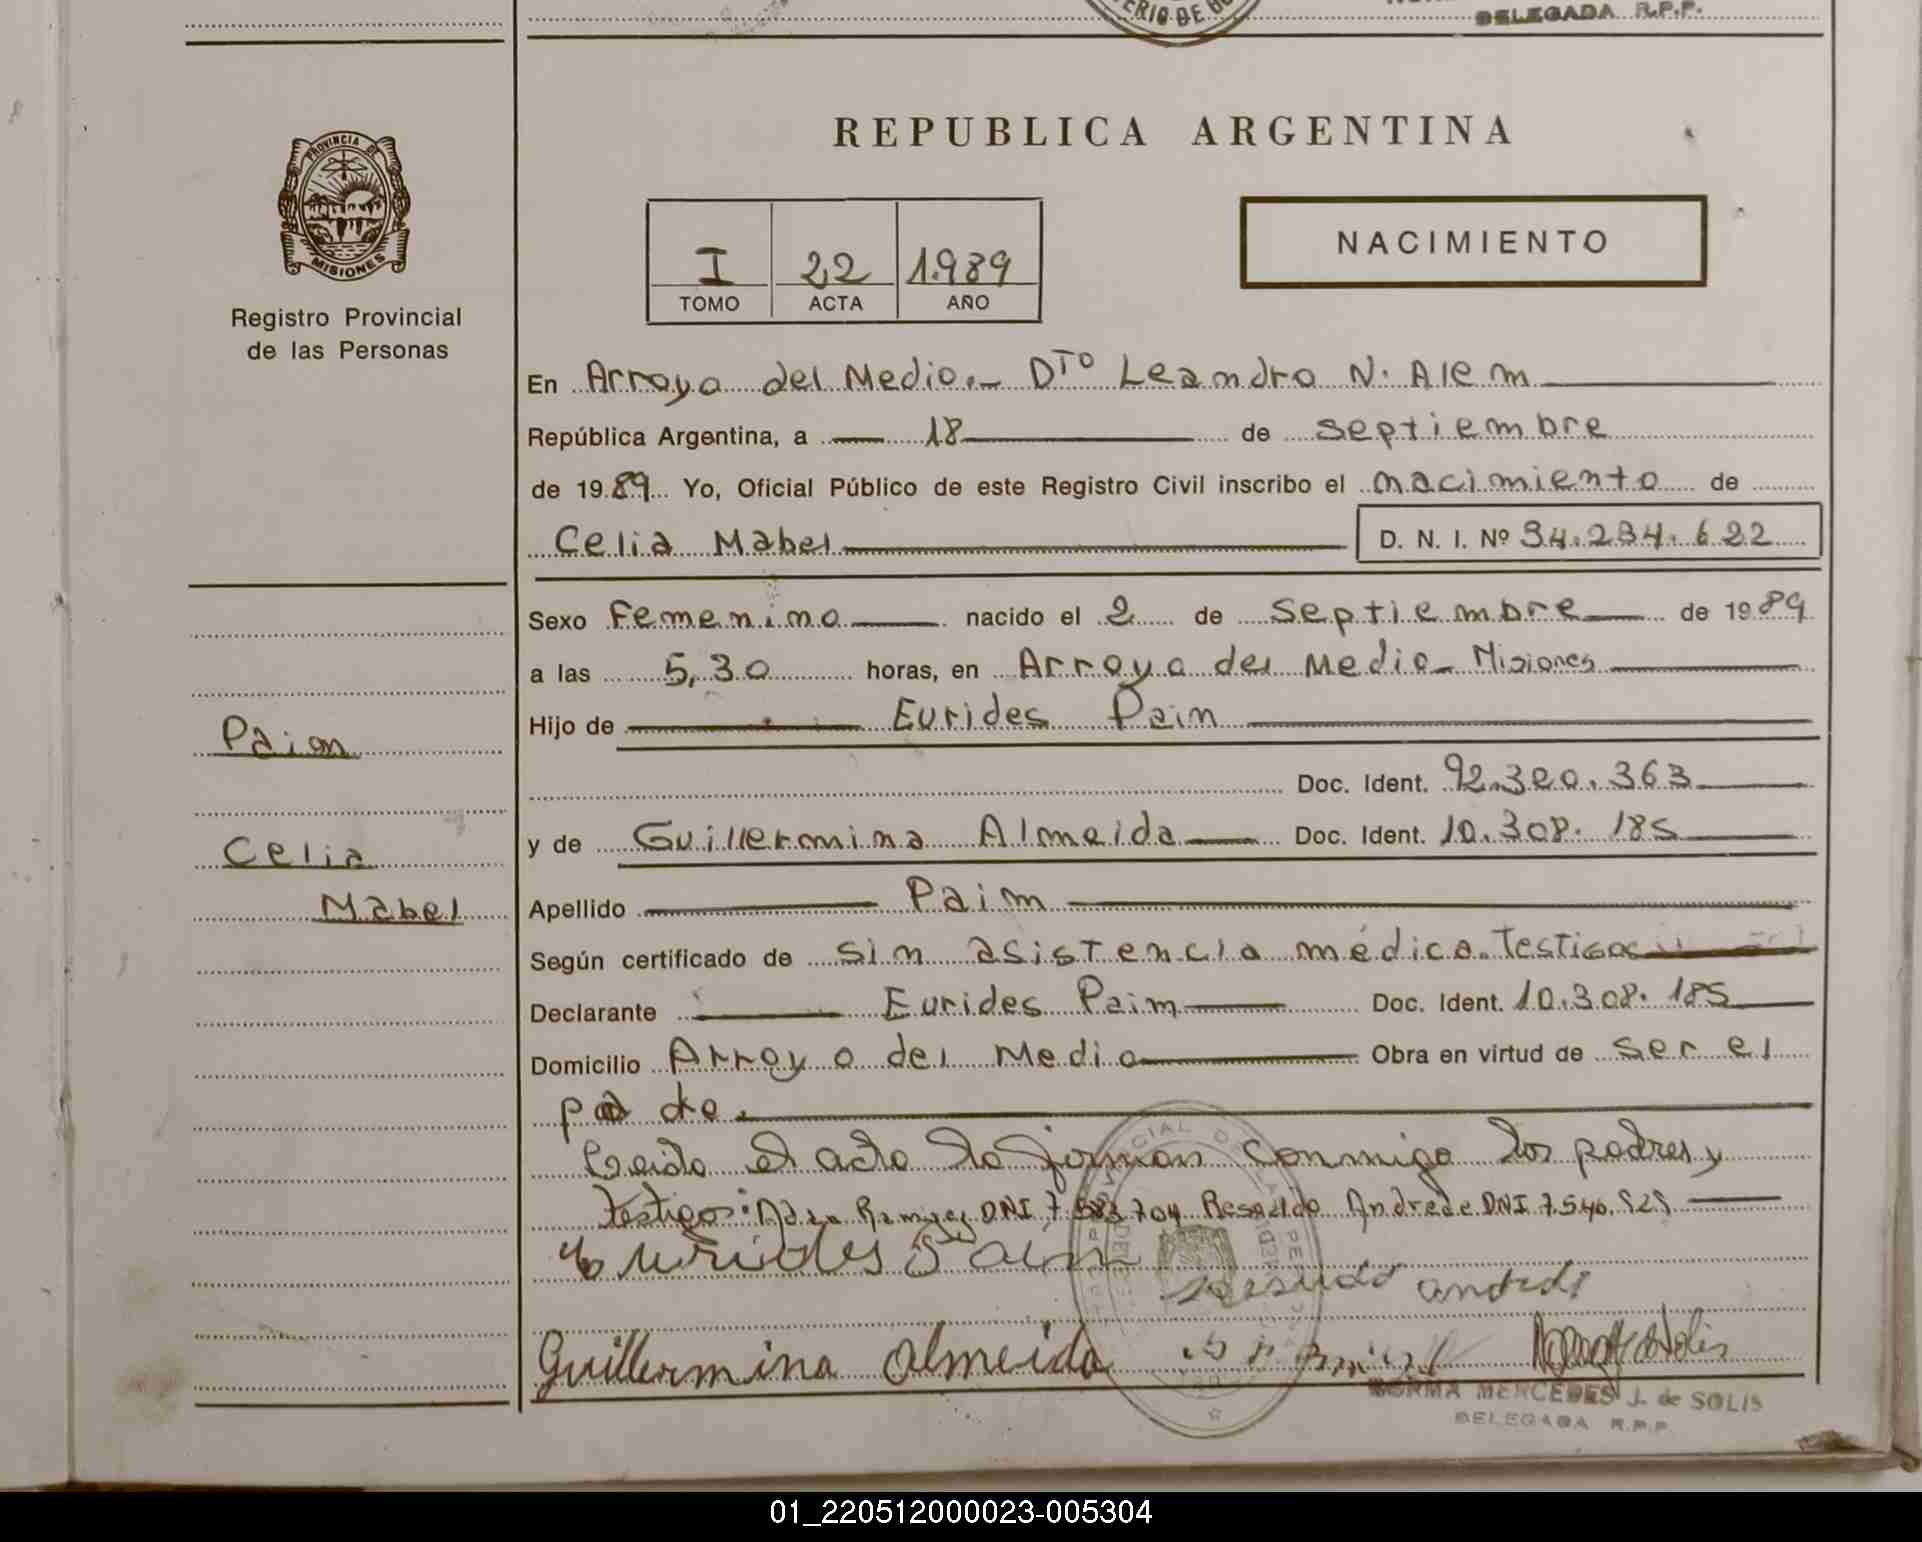 DELEGADA R.P.P.
REPUBLICA ARGENTINA
PROVINCIA DE
MISIONES
Registro Provincial
de las Personas
NACIMIENTO
I 22 1.989
TOMO ACTA AÑO
En Arroyo del Medio.- DTO Leandro N. Alem
República Argentina, a 18 de septiembre
de 1989 Yo, Oficial Público de este Registro Civil inscribo el nacimiento de
Celia Mabel D. N. I. Nº 34.234.622
Sexo Femenino nacido el 2 de Septiembre de 1989
a las 5,30 horas, en Arroyo del Medio- Misiones
Hijo de Eurides Paim
Paim
Doc. Ident. 92.320.363
y de Guillermina Almeida Doc. Ident. 10.308.185
Celia
Mabel
Apellido Paim
Según certificado de sin asistencia médica. Testigos
Declarante Eurides Paim Doc. Ident. 10.308.185
Domicilio Arroyo del Medio Obra en virtud de ser el
padre.
Leida el acta la firman conmigo los padres y
testigos: Ramirez DNI 7.583.704 Rosalido Andrade DNI 7.540.525
Eurides Paim
andrade
Guillermina Almeida
NORMA MERCEDES J. de SOLIS
DELEGADA R.P.P.
01_220512000023-005304